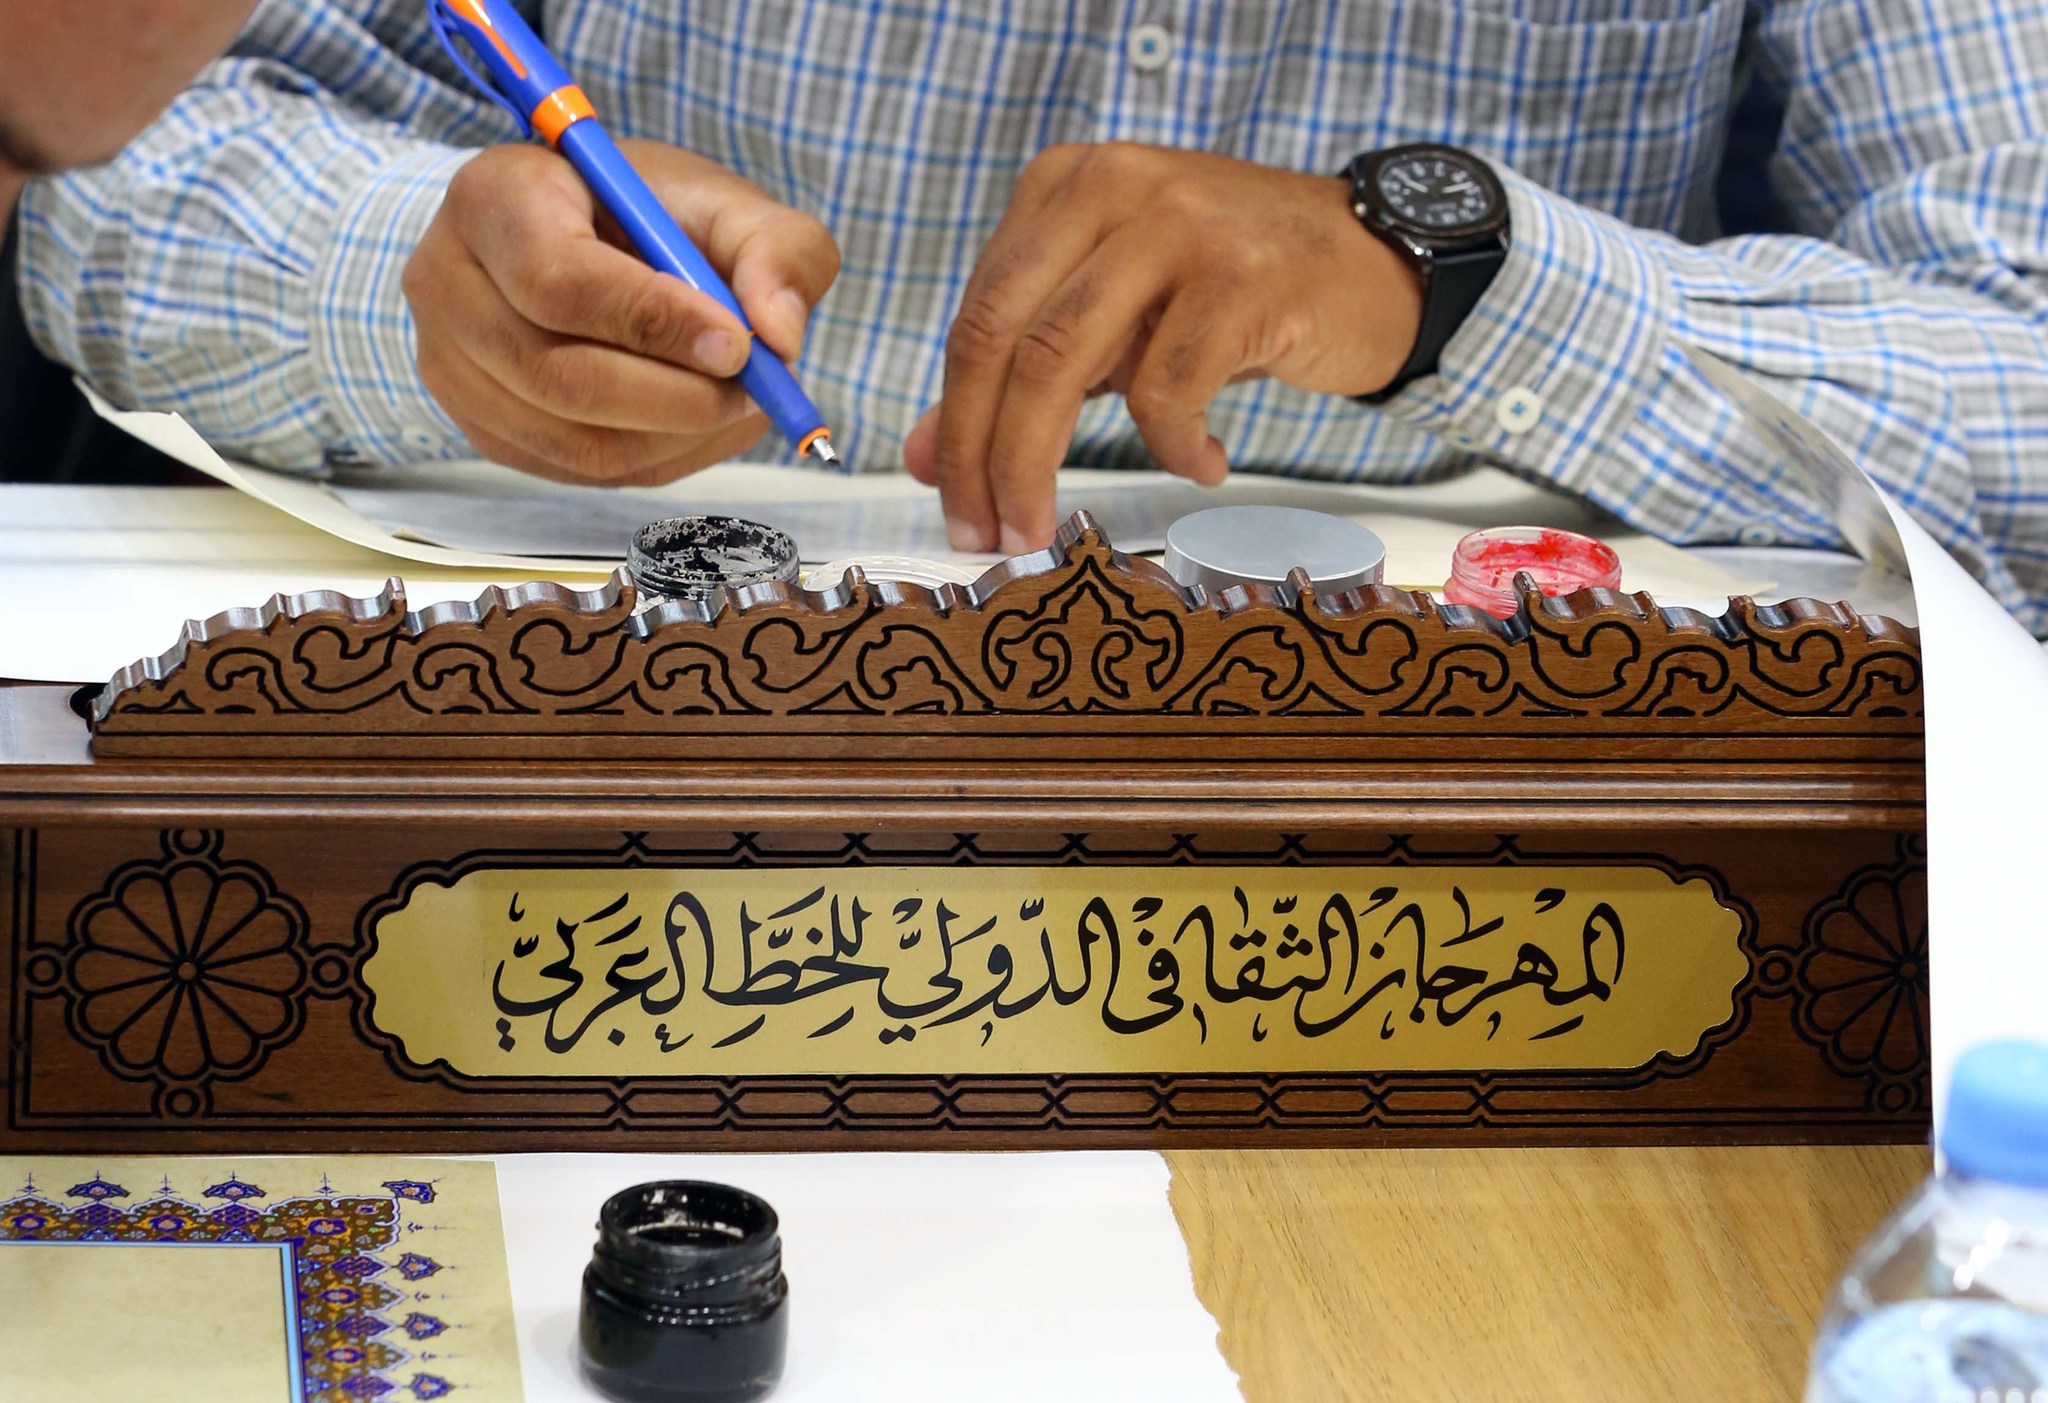 المِهْرجانُ الثّقافيْ الدّوليّْ للخطِّ العربيّْ